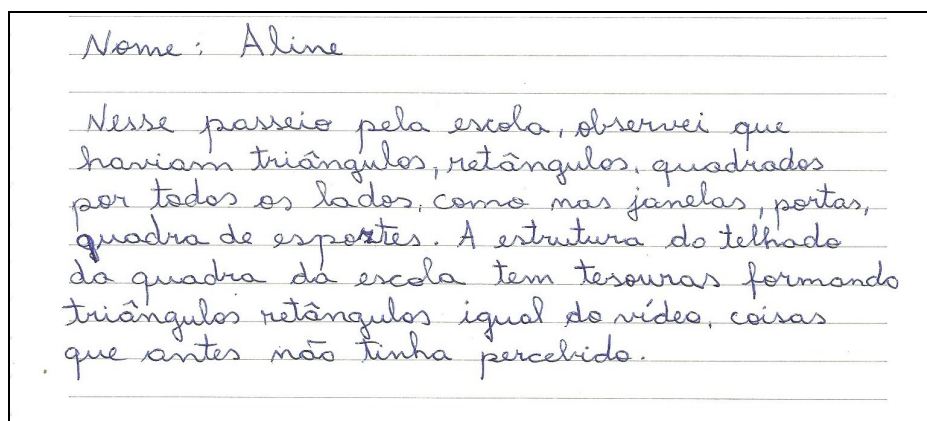 Nome: Aline
Nesse passeio pela escola, observei que
haviam triângulos, retângulos, quadrados
por todos os lados, como nas janelas, portas,
quadra de esportes. A estrutura do telhado
da quadra da escola tem tesouras formando
triângulos retângulos igual do vídeo, coisas
que antes não tinha percebido.